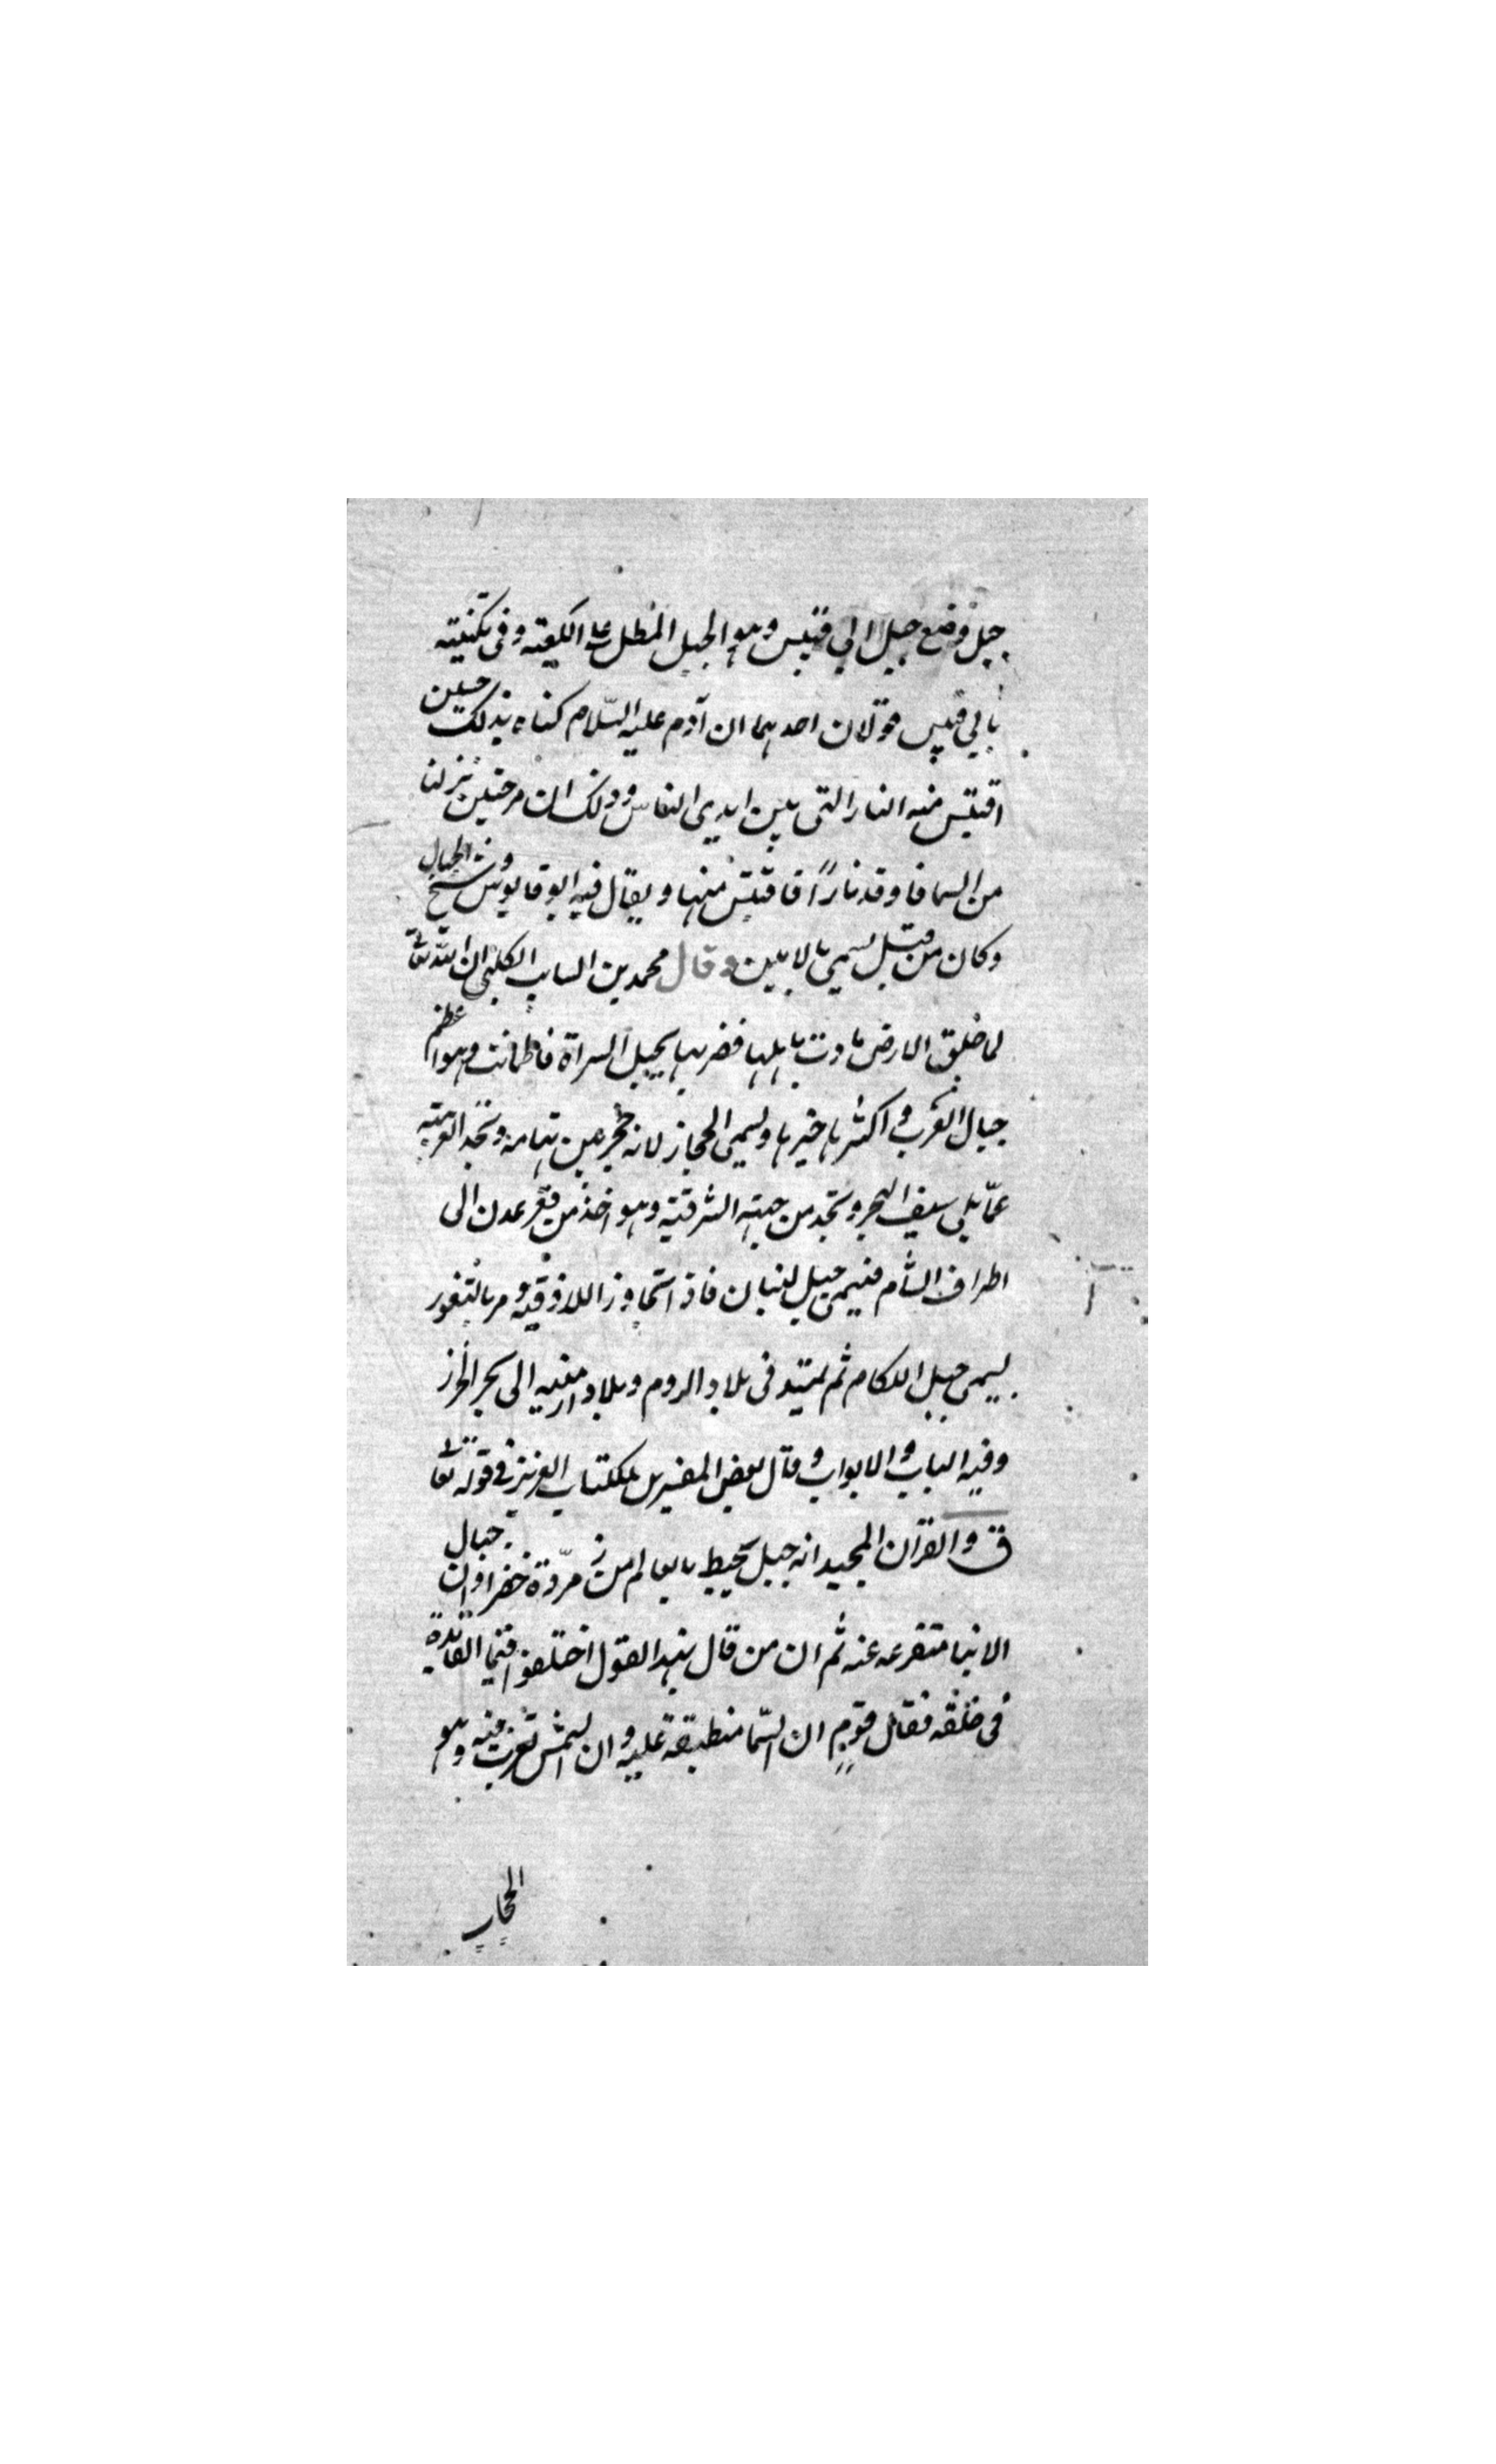 جبل وضع جبل ابي قبيس وهو الجبل المطل على الكعبة وفي تكنيته
بابي قبيس قولان احدهما ان آدم عليه السّلام كناه بذلك حين
اقتبس منه النار التي بين ايدي الناس وذلك ان مرختين نزلتا
من السما فاوقد نارًا فاقتبس منها ويقال فيه ابو قابوس وشيخ الجبال
وكان من قبل يسمي بالامين وقال محمد بن السايب الكلبي ان الله تعا
لما خلق الارض مادت باهلها فضربها بجبل السراة فاطمانت وهو اعظم
جبال العرب و اكثرها خيرها ويسمى الحجاز لانه حجز بين تهامة ونجد
عمّا يلي سيف البحر ونجد من جهته الشرقية وهو اخذ من قعر عدن الى
اطراف الشام فيسمى جبل لبنان فاذا تجاوز اللاذقية و مر بالثغور
يسمى جبل اللكام ثم يمتد في بلاد الروم وبلاد ارمنيه الى بحر الخزر
وفيه الباب و الابواب و قال بعض المفسرين للكتاب العزيز في قوله تعا
ق و القرآن المجيد انه جبل محيط بالعالم من زمرّدة خضرا وان جبال
الدنيا متفرعه عنه ثم ان من قال بهذا القول اختلفوا فيما الفائدة
في خلقه فقال قوم ان السّما منطبقة عليه و ان الشمس تغرب فيه وهو
الحجاب